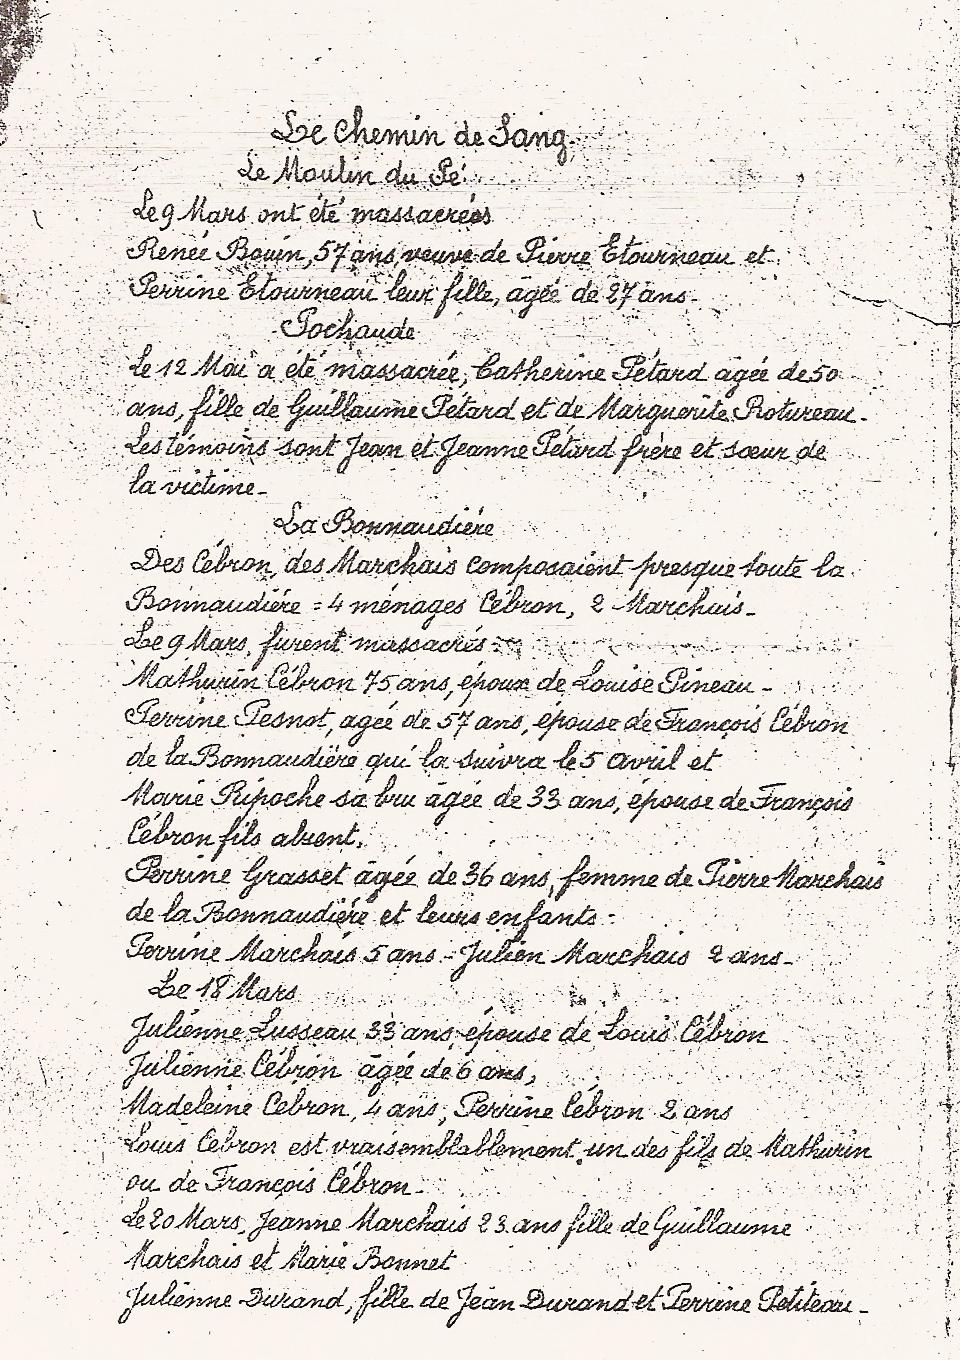 Le Chemin de Sang.
Le Moulin du Pé.
Le 9 Mars ont été massacrées
Renée Bouin, 57 ans, veuve de Pierre Etourneau et
Perrine Etourneau leur fille, agée de 27 ans-
Pochaude
Le 12 Mai a été massacrée, Catherine Pétard agée de 50
ans, fille de Guillaume Pétard et de Marguerite Rotureau.
Les témoins sont Jean et Jeanne Pétard frère et sœur de
la victime-
La Bonnaudière
Des Cébron, des Marchais composaient presque toute la
Bonnaudière = 4 ménages Cébron, 2 Marchais-
Le 9 Mars, furent massacrés:
Mathurin Cébron 75 ans, époux de Louise Pineau -
Perrine Pesnot, agée de 57 ans, épouse de François Cébron
de la Bonnaudière qui la suivra le 5 avril et
Marie Ripoche sa bru agée de 33 ans, épouse de François
Cébron fils absent,
Perrine Grasset agée de 36 ans, femme de Pierre Marchais
de la Bonnaudière et leurs enfants:
Perrine Marchais 5 ans - Julien Marchais 2 ans-
Le 18 Mars
Julienne Lusseau 33 ans, épouse de Louis Cébron
Julienne Cébron agée de 6 ans,
Madeleine Cebron, 4 ans, Perrine Cébron 2 ans
Louis Cébron est vraisemblablement un des fils de Mathurin
ou de François Cébron-
Le 20 Mars, Jeanne Marchais 23 ans fille de Guillaume
Marchais et Marie Bonnet
Julienne Durand, fille de Jean Durand et Perrine Petiteau-